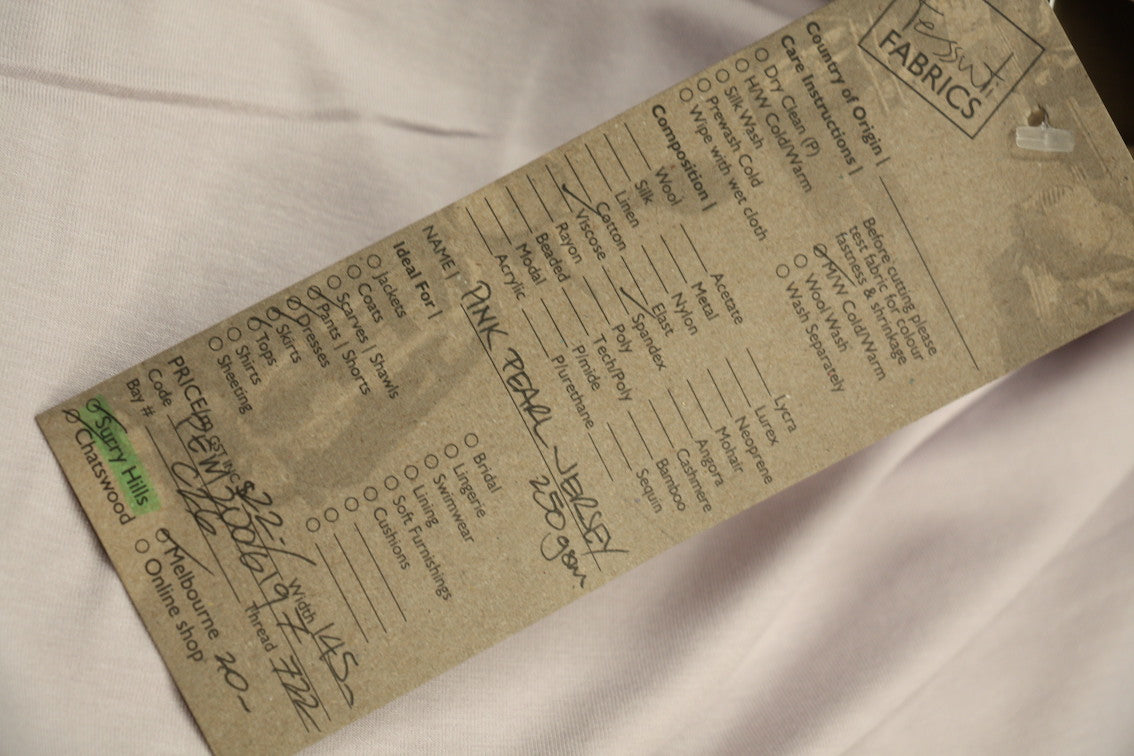 Tessuti
FABRICS
Country of Origin |
Care Instructions |
Dry Clean (P)
H/W Cold/Warm
Silk Wash
Prewash Cold
Wipe with wet cloth
Before cutting please
test fabric for colour
fastness & shrinkage
M/W Cold/Warm
Wool Wash
Wash Separately
Composition |
Wool
Silk
Linen
Cotton
Viscose
Rayon
Beaded
Modal
Acrylic
Acetate
Metal
Nylon
Elast
Spandex
Poly
Tech/Poly
P/mide
P/urethane
Lycra
Lurex
Neoprene
Mohair
Angora
Cashmere
Bamboo
Sequin
NAME | PINK PEARL JERSEY
250gsm
Ideal For |
Jackets
Coats
Scarves | Shawls
Pants | Shorts
Dresses
Skirts
Tops
Shirts
Sheeting
Bridal
Lingerie
Swimwear
Lining
Soft Furnishings
Cushions
PRICE/m GST INC $22.- Width 145
Code Thread 722
Bay #
Surry Hills
Chatswood
Melbourne 20-
Online shop